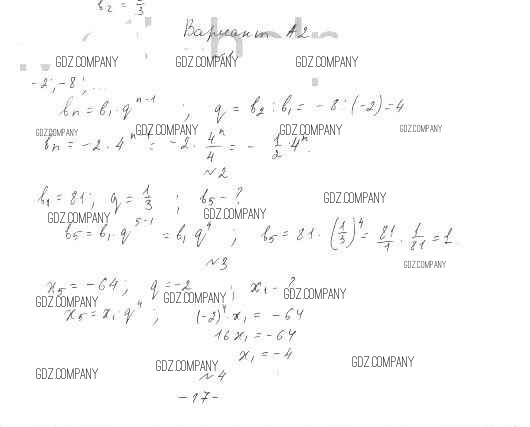 b₂ = 1/3
Вариант А2
GDZ.COMPANY GDZ.COMPANY GDZ.COMPANY
-2; -8; ...
bn = b₁·q^(n-1) ; q = b₂ : b₁ = -8 : (-2) = 4
GDZ.COMPANY GDZ.COMPANY GDZ.COMPANY GDZ.COMPANY
bn = -2·4^(n-1) = -2· 4^n/4 = - 1/2·4^n.
№2
b₁ = 81; q = 1/3 ; b₅ - ? GDZ.COMPANY
GDZ.COMPANY GDZ.COMPANY
b₅ = b₁·q^(5-1) = b₁q⁴ ; b₅ = 81·(1/3)⁴ = 81/1 · 1/81 = 1.
№3 GDZ.COMPANY
x₅ = -64; q = -2 ; x₁ - ?
GDZ.COMPANY GDZ.COMPANY GDZ.COMPANY
x₅ = x₁·q⁴ ; (-2)⁴·x₁ = -64
16x₁ = -64
x₁ = -4
GDZ.COMPANY GDZ.COMPANY GDZ.COMPANY
№4
-17-